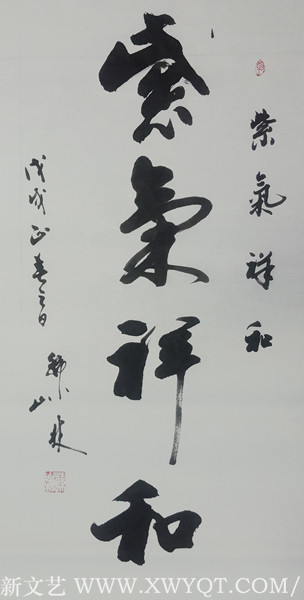 紫氣祥和
紫氣祥和
戊戌正春之日
新文艺 WWW.XWYQT.COM/